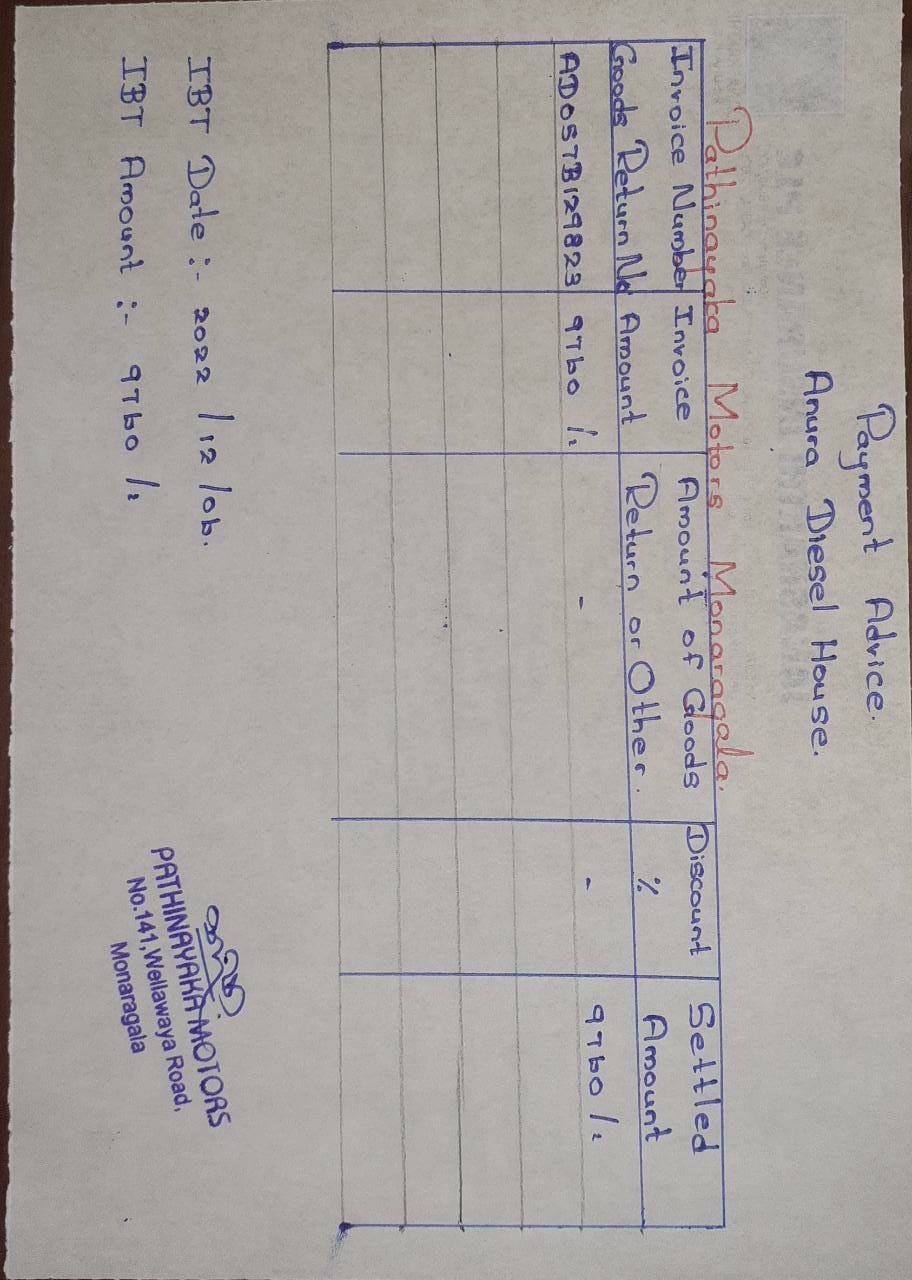 Payment Advice.
Anura Diesel House.
Pathinayaka Motors Monaragala.
Invoice Number Invoice Amount of Goods Discount Settled
Goods Return No Amount Return or Other. % Amount
AD05TB129823 9760 /: - - 9760 /:
IBT Date :- 2022 /12 /06.
IBT Amount :- 9760 /:
PATHINAYAKA MOTORS
No.141,Wellawaya Road,
Monaragala